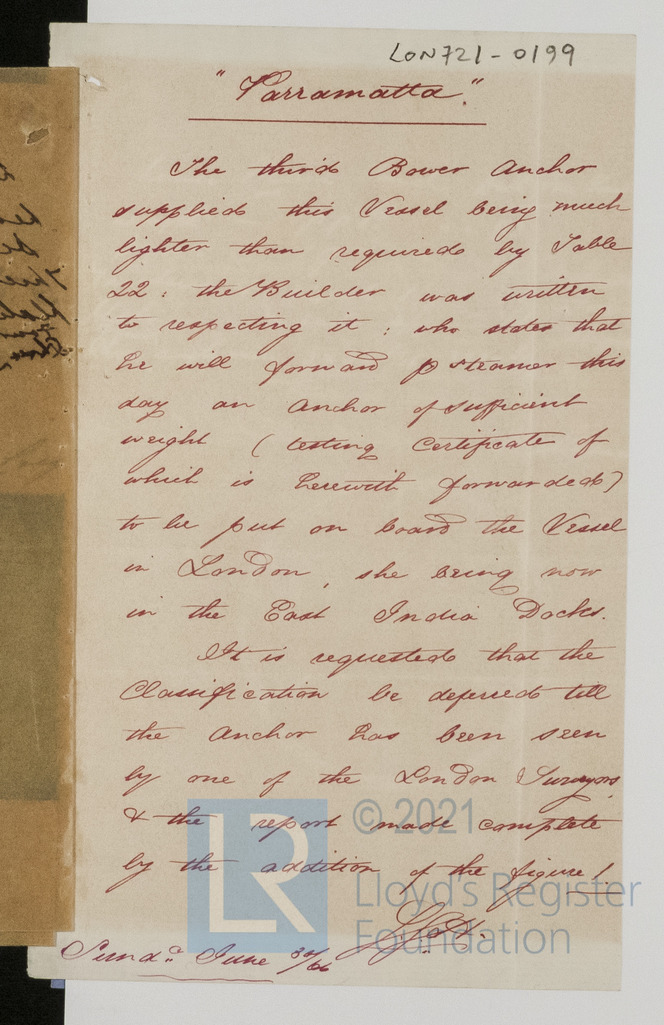 LON721-0199
"Parramatta".
The third Bower Anchor
supplied this Vessel being much
lighter than required by Table
22: the Builder was written
to respecting it; who states that
he will forward p steamer this
day an anchor of sufficient
weight (testing Certificate of
which is herewith forwarded)
to be put on board the Vessel
in London, she being now
in the East India Docks.
It is requested that the
Classification be deferred till
the Anchor has been seen
by one of the London Surveyors
& the report made complete
by the addition of the figure 1.
Sund. June 30/66
LR
© 2021
Lloyd's Register
Foundation